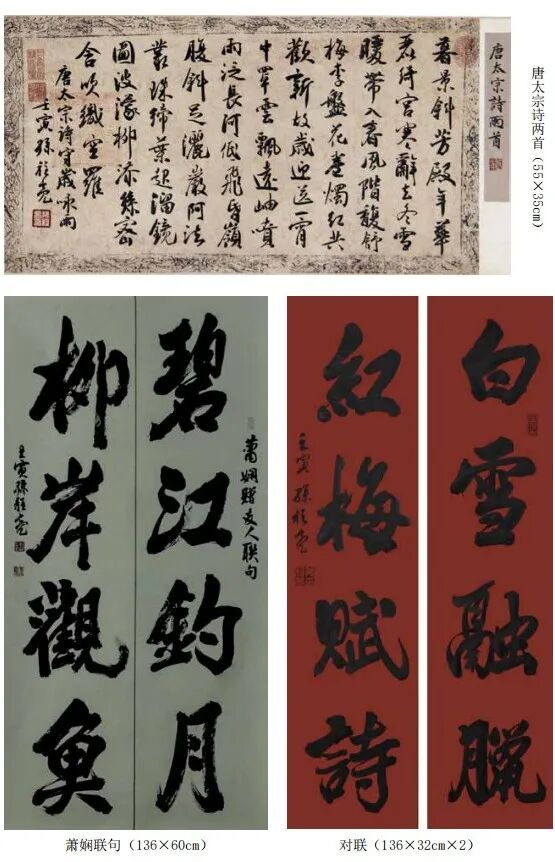 唐太宗詩兩首
暮景斜芳殿年華
麗綺宮寒辭去冬雪
暖帶入春風階馥舒
梅素盤花卷燭紅共
歡新故歲迎送一宵
中罩雲飄遠岫噴
雨泛長河低飛昏嶺
腹斜足灑巖阿泫
叢珠締葉起溜鏡
圖波濛柳添絲密
含吹織空羅
唐太宗詩守歲咏雨
壬寅孫
唐太宗诗两首（55×35cm）
蕭嫻贈友人联句
碧江釣月
柳岸觀魚
壬寅孫
萧娴联句（136×60cm）
白雪融臘
紅梅賦詩
壬寅孫
对联（136×32cm×2）